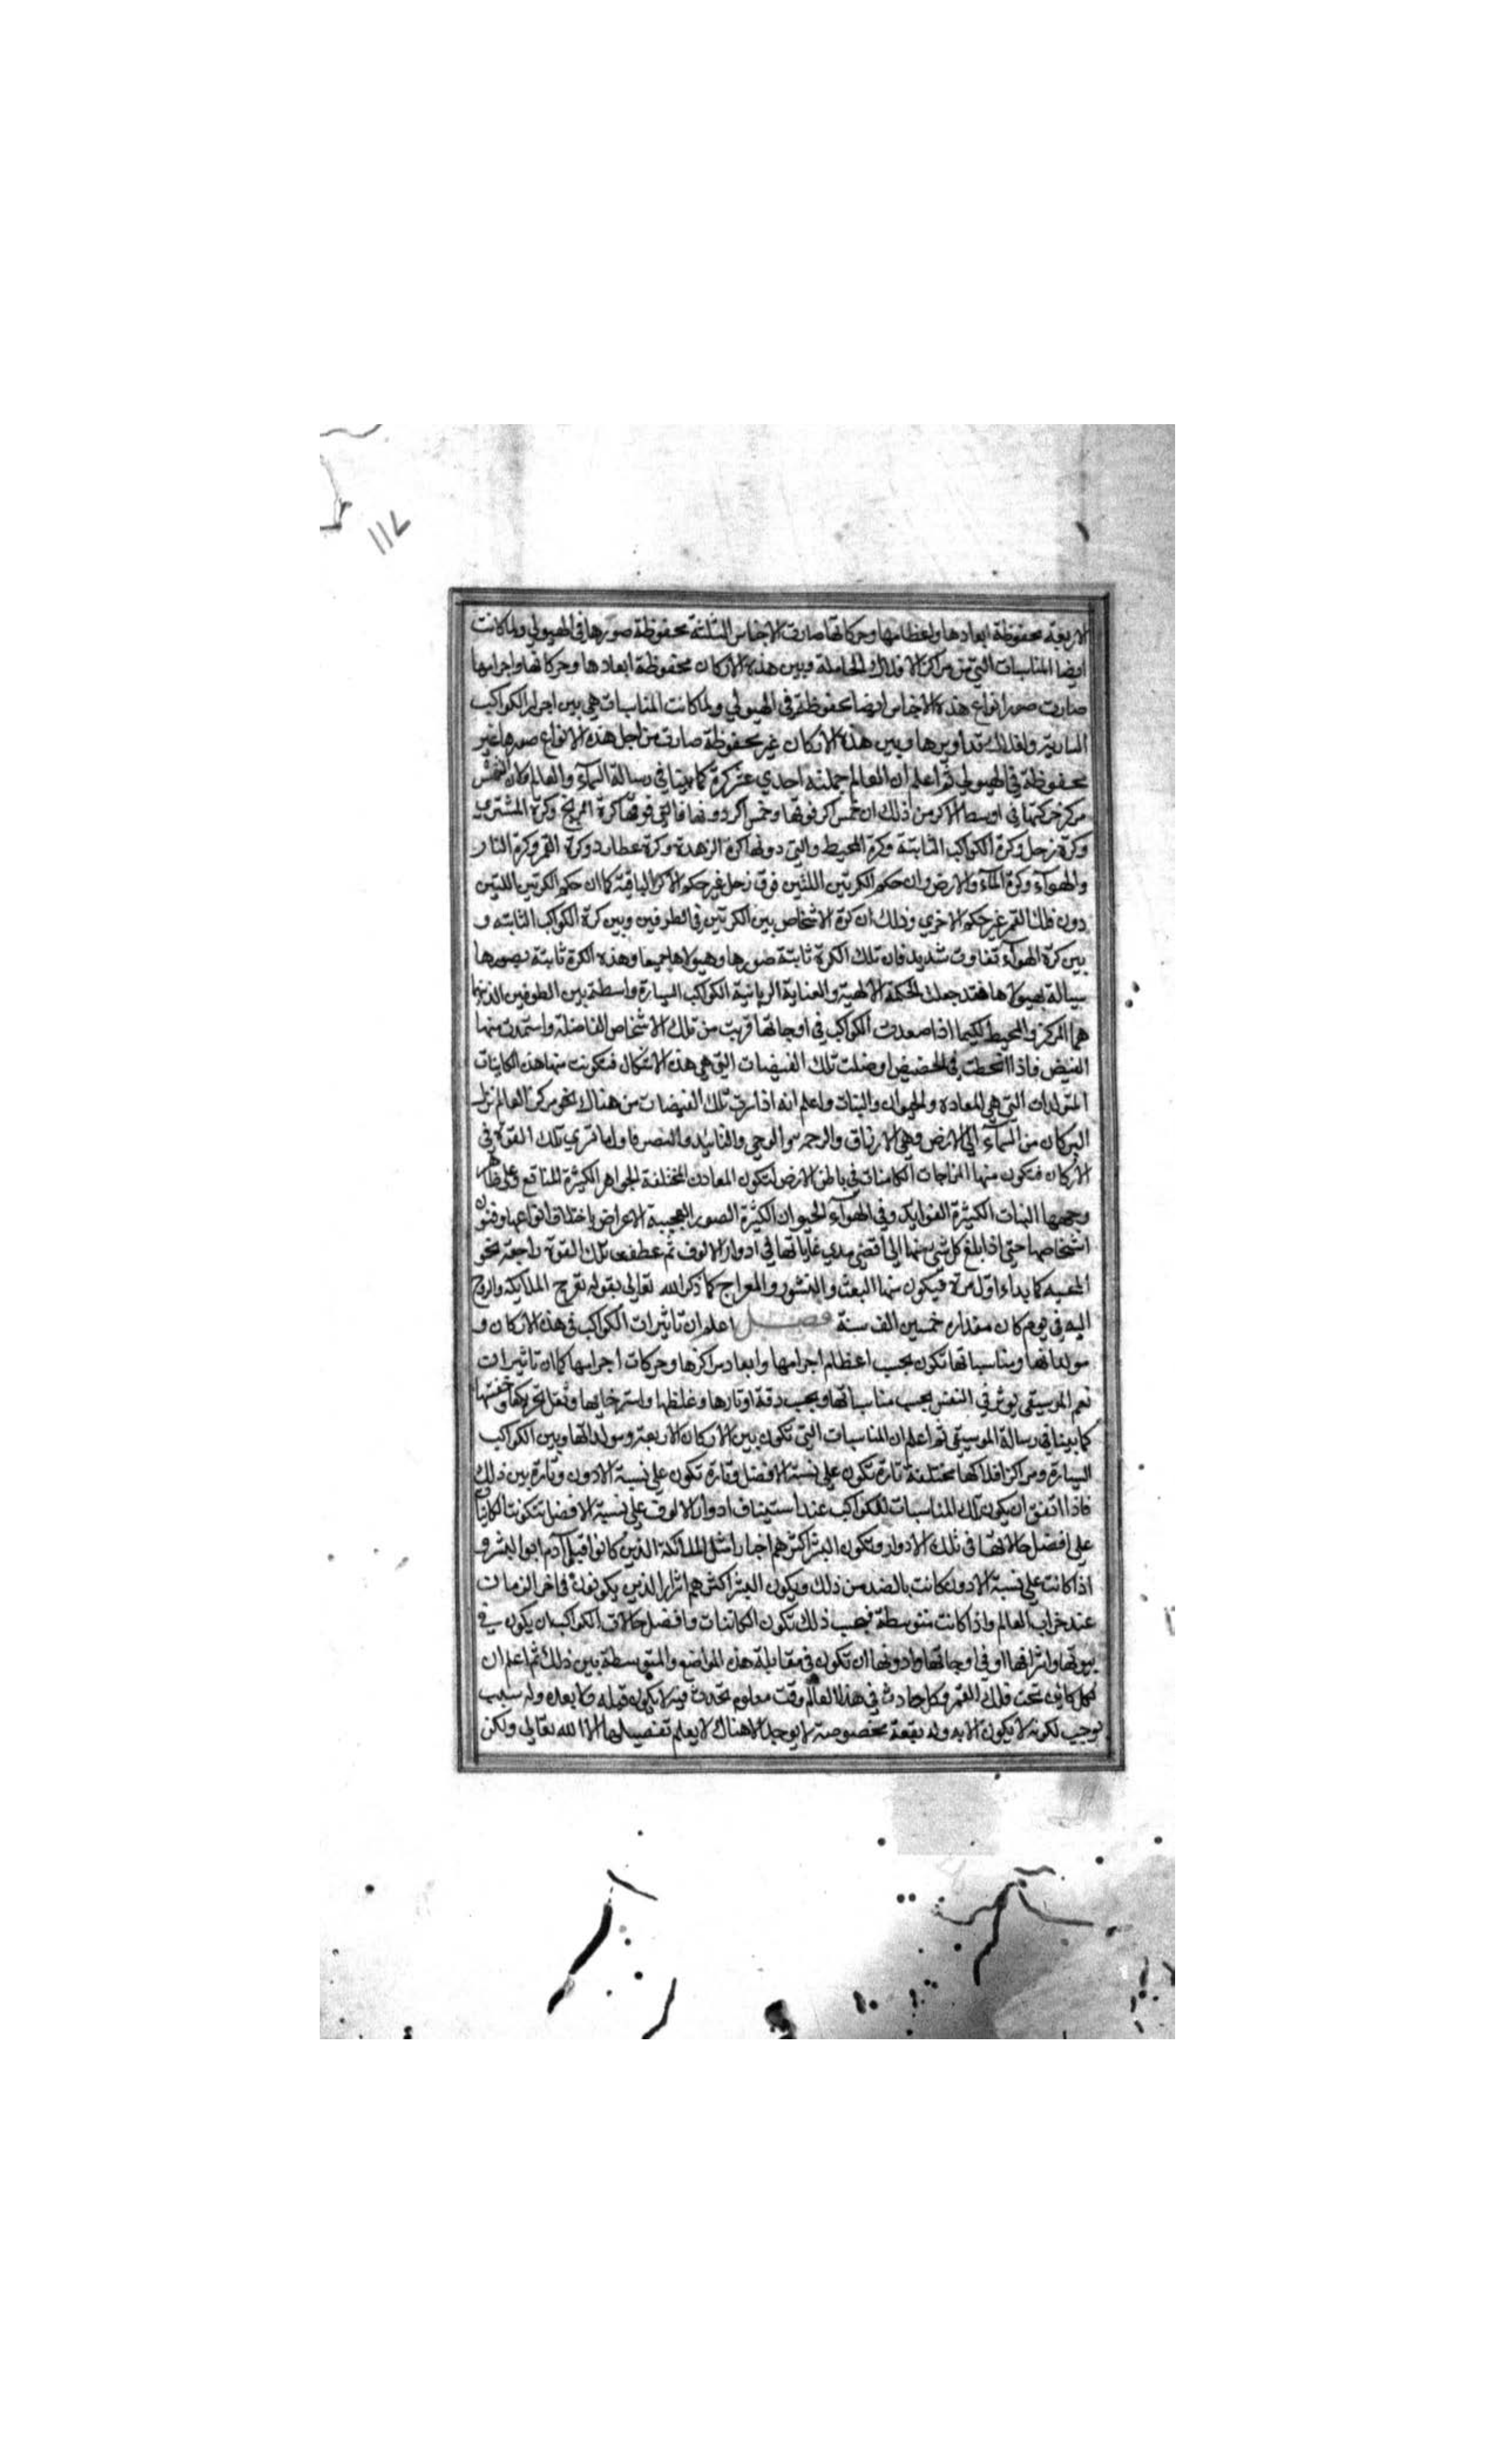 ١١٧
الاربعة محفوظة ابعادها واعظامها وحركاتها صارت الاجناس الثلثة محفوظة صورها في الهيولي ولما كانت
ايضا المناسبات التي من مراكز الافلاك الحاملة وبين هذه الاركان محفوظة ابعادها وحركاتها واجرامها
صارت صور انواع هذه الاجناس ايضا محفوظة في الهيولي ولما كانت المناسبات هي بين اجرام الكواكب
السيارة وافلاك تداويرها وبين هذه الاركان غير محفوظة صارت من اجل هذه الانواع صورها غير
محفوظة في الهيولي ثم اعلم ان العالم جملته احدي عشر كرة كما بينا في رسالة السماء والعالم وان الشمس
مركز حركتها في اوسط الاكر من ذلك ان خمس اكر فوقها وخمس اكر دونها فالتي فوقها كرة المريخ وكرة المشتري
وكرة زحل وكرة الكواكب الثابتة وكرة المحيط والتي دونها كرة الزهرة وكرة عطارد وكرة القمر وكرة النار
والهواء وكرة الماء والارض وان حكم الكرتين اللتين فوق زحل غير حكم الاكر الباقية كما ان حكم الكرتين اللتين
دون فلك القمر غير حكم الاخري وذلك ان كرة الاشخاص بين الكرتين في الطرفين وبين كرة الكواكب الثابته و
بين كرة الهواء تفاوت شديد فان تلك الكرة ثابتة صورها وهيولاها جميعا وهذه الكرة ثابتة بصورها
سيالة بهيولاها فقد جعلت الحكمة الالهية والعناية الربانية الكواكب السيارة واسطة بين الطرفين الذينما
هما المركز والمحيط لكيما اذا صعدت الكواكب في اوجاتها قربت من تلك الاشخاص الفاضلة واستمدت منها
الفيض فاذا انحطت في الحضيض اوصلت تلك الفيضات التي هي هذه الاشكال فتكونت منها هذه الكاينات
المتولدات التي هي المعادن والحيوان والنبات واعلم انه اذا سرت تلك الفيضات من هناك نحو مركز العالم نزلت
البركان من السماء الي الارض وهي الارزاق والرحمه والوحي والتائيد والنصر فاول ما تسري تلك القوة في
الاركان فتكون منها المزاجات الكامنات في باطن الارض لتكون المعادن المختلفة الجواهر الكثيرة المنافع وعلي ظاهر
وجهها النبات الكثيرة الفوايد وفي الهواء الحيوان الكثيرة الصور العجيبة الاعراض باختلاف انواعها وفنون
اشخاصها حتي اذا بلغ كل شيء منها الي اقصي مدي غاياتها في ادوار الالوف ثم عطفت تلك القوة راجعة نحو
المحيط كما بداء اول مرة فيكون منها البعث والنشور والمعراج كما ذكر الله تعالي بقوله تعرج الملايكة والروح
اليه في يوم كان مقداره خمسين الف سنة فصل اعلم ان تاثيرات الكواكب في هذه الاركان و
مولداتها ومناسباتها تكون بحسب اعظام اجرامها وابعاد مراكزها وحركات اجرامها كما ان تاثيرات
نغم الموسيقي يوثر في النفس بحسب مناسباتها وبحسب دقة اوتارها وغلظها واسترخايها وثقل تحريكها وخفتها
كما بينا في رسالة الموسيقي ثم اعلم ان المناسبات التي تكون بين الاركان الاربعة ومولداتها وبين الكواكب
السيارة ومراكز افلاكها مختلفة تارة تكون علي نسبة الافضل وتارة تكون علي نسبة الادون وتارة بين ذلك
فاذا اتفق ان يكون تلك المناسبات للكواكب عند استيناف ادوار الالوف علي نسبة الافضل تتكونت الكاينات
علي افضل حالاتها في تلك الادوار وتكون البشر اكثرهم اخيارا مثل الملائكة الذين كانوا قبل آدم ابو البشر و
اذا كانت علي نسبة الادون كانت بالضد من ذلك ويكون البشر اكثرهم اشرارا الذين يكونون في اخر الزمان
عند خراب العالم واذا كانت متوسطة فبحسب ذلك تكون الكائنات وافضل حالات الكواكب ان يكون في
بيوتها واشرافها او في اوجاتها وادونها ان تكون في مقابلة هذه المواضع والمتوسطة بين ذلك ثم اعلم ان
لكل كاين تحت فلك القمر وكل حادث في هذا العالم وقت معلوم تحدث فيه لا يكون قبله ولا بعده وله سبب
توجب لكونه لا يكون الا به وله بقعة مخصوصة لا يوجد الا هناك لا يعلم تفصيلها الا الله تعالي ولكن